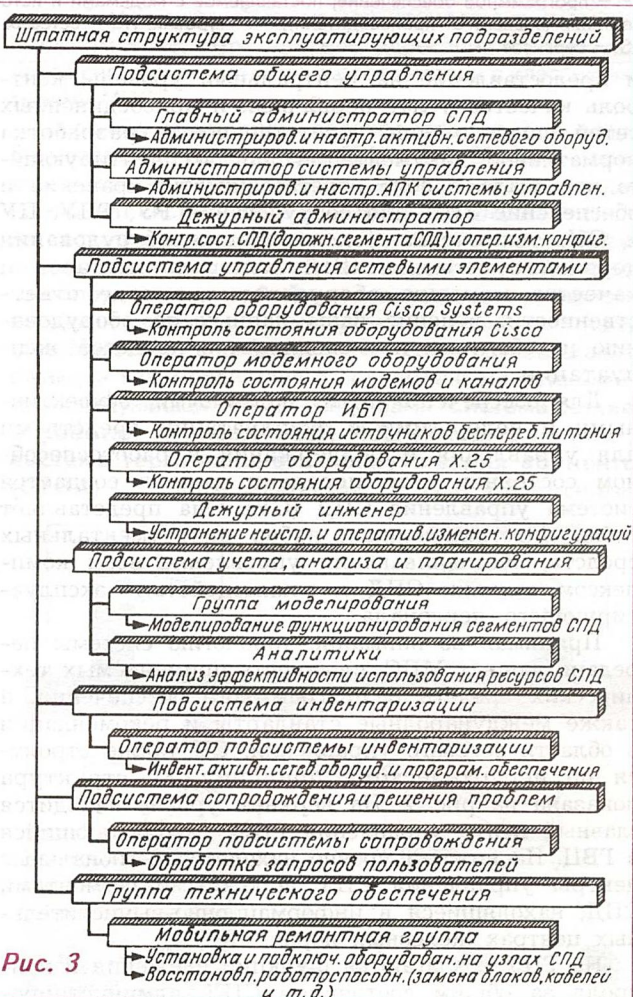 Штатная структура эксплуатирующих подразделений
Подсистема общего управления
Главный администратор СПД
Администриров. и настр. активн. сетевого оборуд.
Администратор системы управления
Администриров. и настр. АПК системы управлен.
Дежурный администратор
Контр. сост. СПД (дорожн. сегмента СПД) и опер. изм. конфиг.
Подсистема управления сетевыми элементами
Оператор оборудования Cisco Systems
Контроль состояния оборудования Cisco
Оператор модемного оборудования
Контроль состояния модемов и каналов
Оператор ИБП
Контроль состояния источников беспереб. питания
Оператор оборудования X.25
Контроль состояния оборудования X.25
Дежурный инженер
Устранение неиспр. и оператив. изменен. конфигураций
Подсистема учета, анализа и планирования
Группа моделирования
Моделирование функционирования сегментов СПД
Аналитик
Анализ эффективности использования ресурсов СПД
Подсистема инвентаризации
Оператор подсистемы инвентаризации
Инвент. активн. сетев. оборуд. и програм. обеспечения
Подсистема сопровождения и решения проблем
Оператор подсистемы сопровождения
Обработка запросов пользователей
Группа технического обеспечения
Мобильная ремонтная группа
Установка и подключ. оборудован. на узлах СПД
Восстановл. работоспособн. (замена блоков, кабелей
и т. д.)
Рис. 3